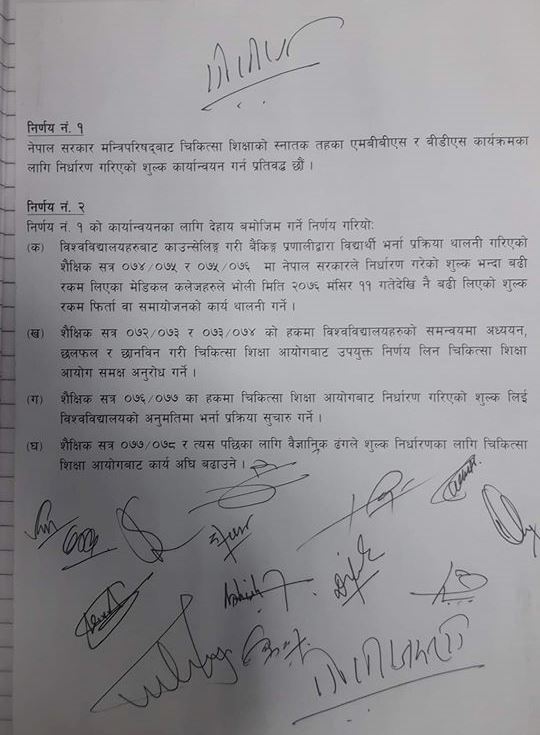 निर्णय नं. १
नेपाल सरकार मन्त्रिपरिषद्बाट चिकित्सा शिक्षाको स्नातक तहका एमबीबीएस र बीडीएस कार्यक्रमका
लागि निर्धारण गरिएको शुल्क कार्यान्वयन गर्न प्रतिवद्ध छौं ।
निर्णय नं. २
निर्णय नं. १ को कार्यान्वयनका लागि देहाय बमोजिम गर्ने निर्णय गरियो:
(क) विश्वविद्यालयहरुबाट काउन्सेलिङ्ग गरी बैंकिङ्ग प्रणालीद्वारा विद्यार्थी भर्ना प्रक्रिया थालनी गरिएको
शैक्षिक सत्र ०७४/०७५ र ०७५/०७६ मा नेपाल सरकारले निर्धारण गरेको शुल्क भन्दा बढी
रकम लिएका मेडिकल कलेजहरुले भोली मिति २०७६ मंसिर ११ गतेदेखि नै बढी लिएको शुल्क
रकम फिर्ता वा समायोजनको कार्य थालनी गर्ने ।
(ख) शैक्षिक सत्र ०७२/०७३ र ०७३/०७४ को हकमा विश्वविद्यालयहरुको समन्वयमा अध्ययन,
छलफल र छानविन गरी चिकित्सा शिक्षा आयोगबाट उपयुक्त निर्णय लिन चिकित्सा शिक्षा
आयोग समक्ष अनुरोध गर्ने ।
(ग) शैक्षिक सत्र ०७६/०७७ का हकमा चिकित्सा शिक्षा आयोगबाट निर्धारण गरिएको शुल्क लिई
विश्वविद्यालयको अनुमतिमा भर्ना प्रक्रिया सुचारु गर्ने ।
(घ) शैक्षिक सत्र ०७७/०७८ र त्यस पछिका लागि वैज्ञानिक ढंगले शुल्क निर्धारणका लागि चिकित्सा
शिक्षा आयोगबाट कार्य अघि बढाउने ।